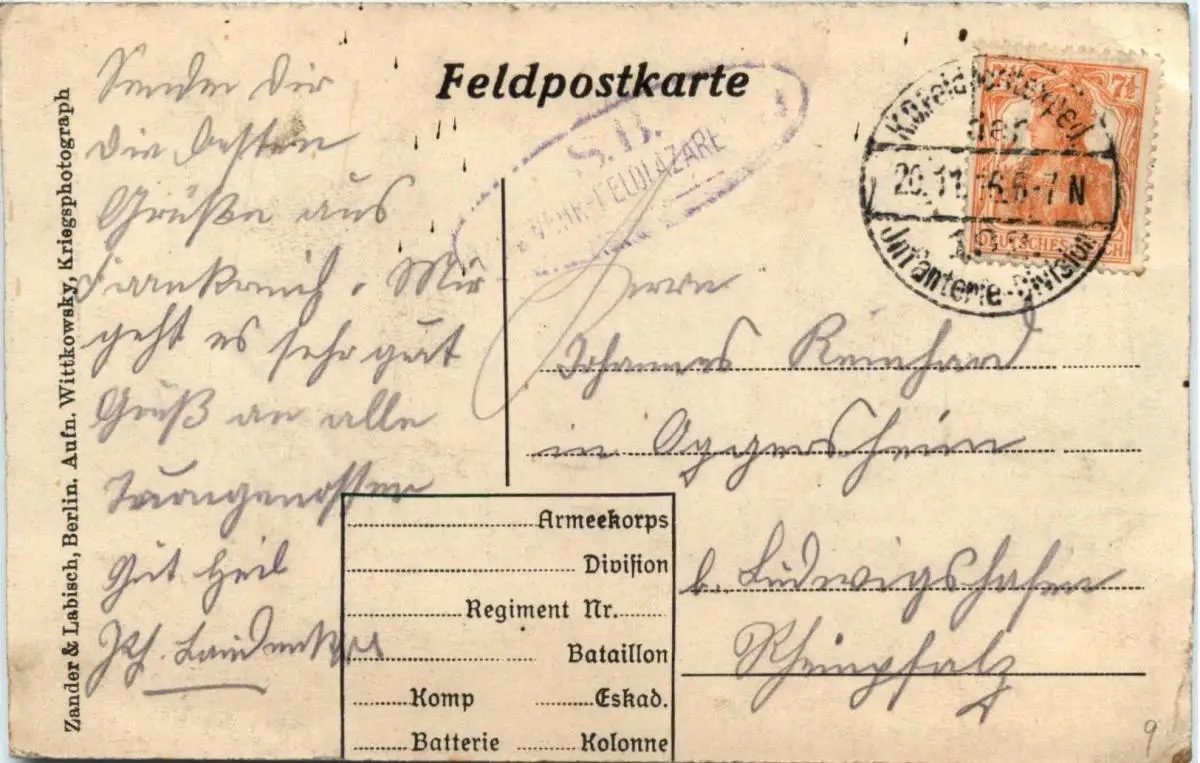 Feldpostkarte
Sende Dir
die besten
Grüße aus
Frankreich. Mir
geht es sehr gut
Gruß an alle
Turngenossen
Gut Heil
Zander & Labisch, Berlin. Aufn. Wittkowsky, Kriegsphotograph
S.B.
FELDLAZARE
K.D. Feldpostexped.
der
20.11. 6-7 N
Infanterie-Division
7½
DEUTSCHES REICH
Herrn
Johannes Reinhard
in Oggersheim
b. Ludwigshafen
Rheinpfalz
Armeekorps
Division
Regiment Nr.
Bataillon
Komp Eskad.
Batterie Kolonne
9